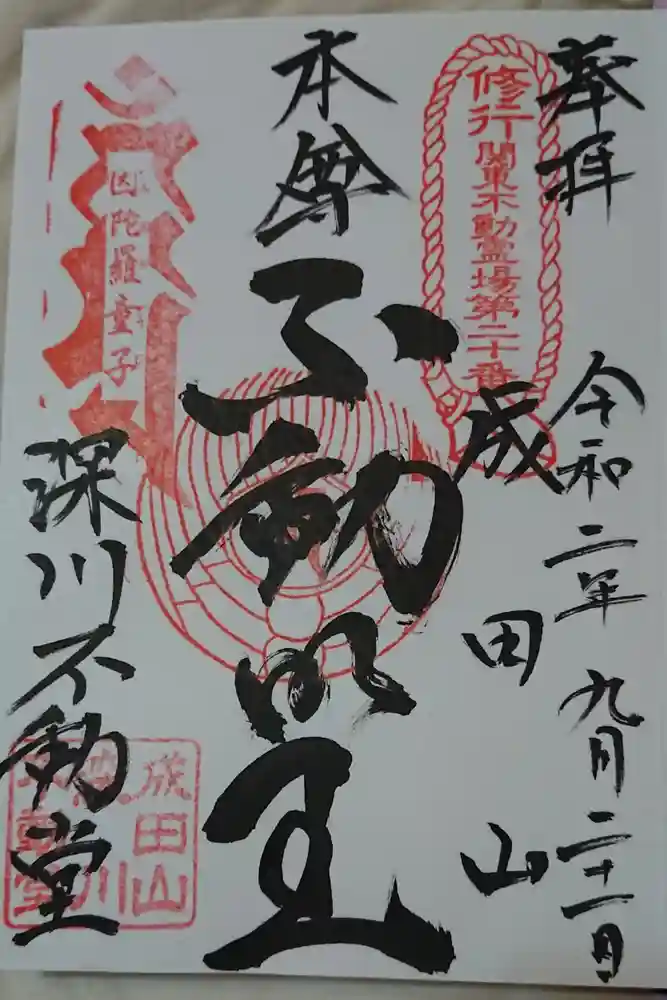 奉拝
令和二年九月二十一日
修行
関東不動霊場第二十番
成田山
本尊
不動明王
因陀羅童子
深川不動堂
成田山
深川
不動堂